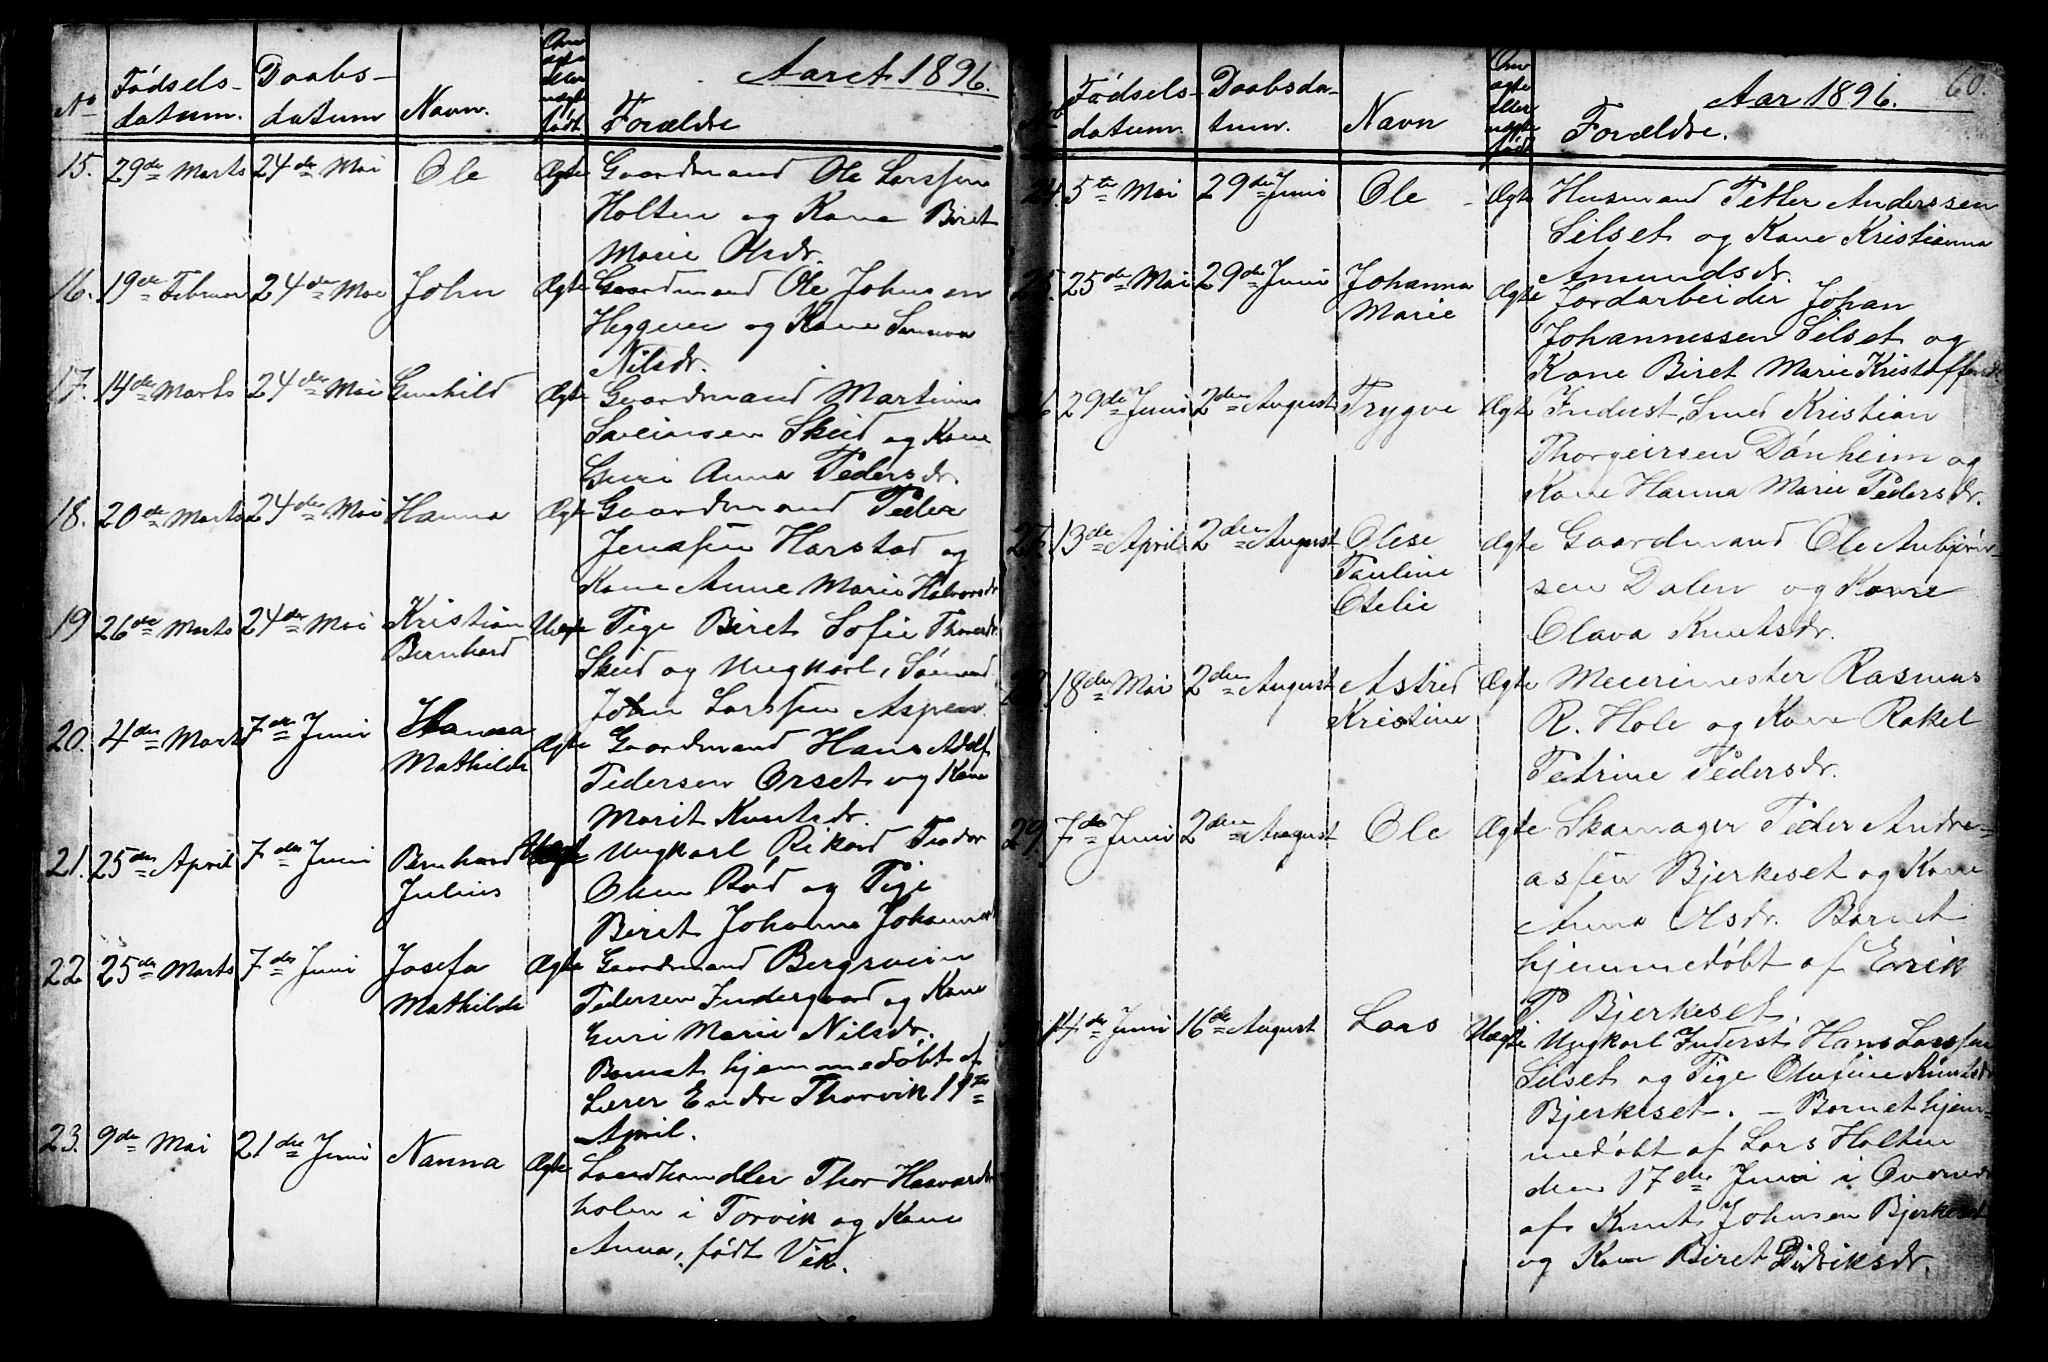 Aaret 1896.
No Fødsels-datum. Daabs-datum Navn. Om ægte eller uægte født Forældre
15. 29de Marts 24de Mai Ole Ægte Gaardmand Ole Larssen
Holten og Kone Beret
Marie Olsdr.
16. 19de Februar 24de Mai John Ægte Gaardmand Ole Johnsen
Heggem og Kone
Nilsdr.
17. 14de Marts 24de Mai Gunhild Ægte Gaardmand Martinus
Sveinsen Skeid og Kone
Guri Anna Pedersdr.
18. 20de Marts 24de Mai Hanna Ægte Gaardmand Peder
Jenssen Harstad og
Kone Anne Marie Halvorsdr
19 26de Marts 24de Mai Kristian Bernhard Uægte Pige Beret Sofie
Skeid og Ungkarl,
John Larssen Aspen.
20. 4de Marts 7de Juni Hanna Mathilde Ægte Gaardmand Hans Adolf
Pedersen Orset og Kone
Marit Knutsdr.
21. 25de April 7de Juni Bernhard Julius Uægte Ungkarl Rikard Teodor
Olsen Rød og Pige
Beret Johanna
22. 25de Marts 7de Juni Josefa Mathilde Ægte Gaardmand Bergsvein
Pedersen Indergaard og Kone
Guri Marie Nilsdr.
Barnet hjemmedøbt af
Lærer Endre Thorvik 11te
April.
23. 9de Mai 21de Juni Nanna Ægte Landhandler Thor
holm i Torvik og Kone
Anna, født Vik.
Aar 1896. 60.
No Fødsels-datum. Daabsda-tum. Navn Om ægte eller uægte født Forældre.
24. 5te Mai 29de Juni Ole Ægte Husmand Petter Anderssen
Silset og Kone Kristianna
Amundsdr.
25. 25de Mai 29de Juni Johanna Marie Ægte Jordarbeider Johan
Johannessen Silset og
Kone Beret Marie
29de Juni 2den August Trygve Ægte Indust, Smed Kristian
Thorgeirsen Dønheim og
Kone Hanna Marie Pedersdr.
27. 13de April 2den August Olese Pauline Otelie Ægte Gaardmand Ole Anbjørn-
sen Dalen og Kone
Olava Knutsdr.
28. 18de Mai 2den August Astrid Kristine Ægte Meierimester Rasmus
R. Hole og Kone Rakel
Petrine Pedersdr.
29. 7de Juni 2den August Ole Ægte Skomager Peder Andre-
assen Bjerkeset og Kone
Anna Olsdr. Barnet
hjemmedøbt af Erik
P. Bjerkeset.
14de Juni 16de August Lars Uægte Ungkarl Inderst Hans Larssen
Silset og Pige Olufine Knutsdr
Bjerkeset. – Barnet hjem-
medøbt af Lars Holten
den 17de Juni i Overvær
af Knut Johnsen Bjerkeset
og Kone Beret Didriksdr.